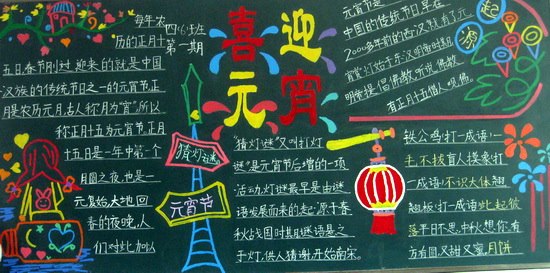 四(6)班
第一期
喜迎
元宵
每年农
历的正月十
五日,春节刚过,迎来的就是中国
汉族的传统节日之一的元宵节。正
月是农历元月,古人称月为"宵",所以
称正月十五为元宵节。正月
十五日是一年中第一个
月圆之夜,也是一
元复始,大地回
春的夜晚,人
们对此加以
猜灯谜
元宵节
"猜灯谜"又叫"打灯
谜"是元宵节后增的一项
活动,灯谜最早是由谜
语发展而来的,起源于春
秋战国时期。谜语悬之
于灯,供人猜射,开始南宋。
起源
元宵节是
中国的传统节日早在
2000多年前的西汉就有了元
宵赏灯始于东汉明帝时期
明帝提倡佛教,听说佛教
有正月十五僧人观佛
铁公鸡(打一成语)一
毛不拔 盲人摸象(打
一成语)不识大体 翘
翘板(打一成语)此起彼
落 平日不思,中秋想你,有
方有圆,又甜又蜜,月饼